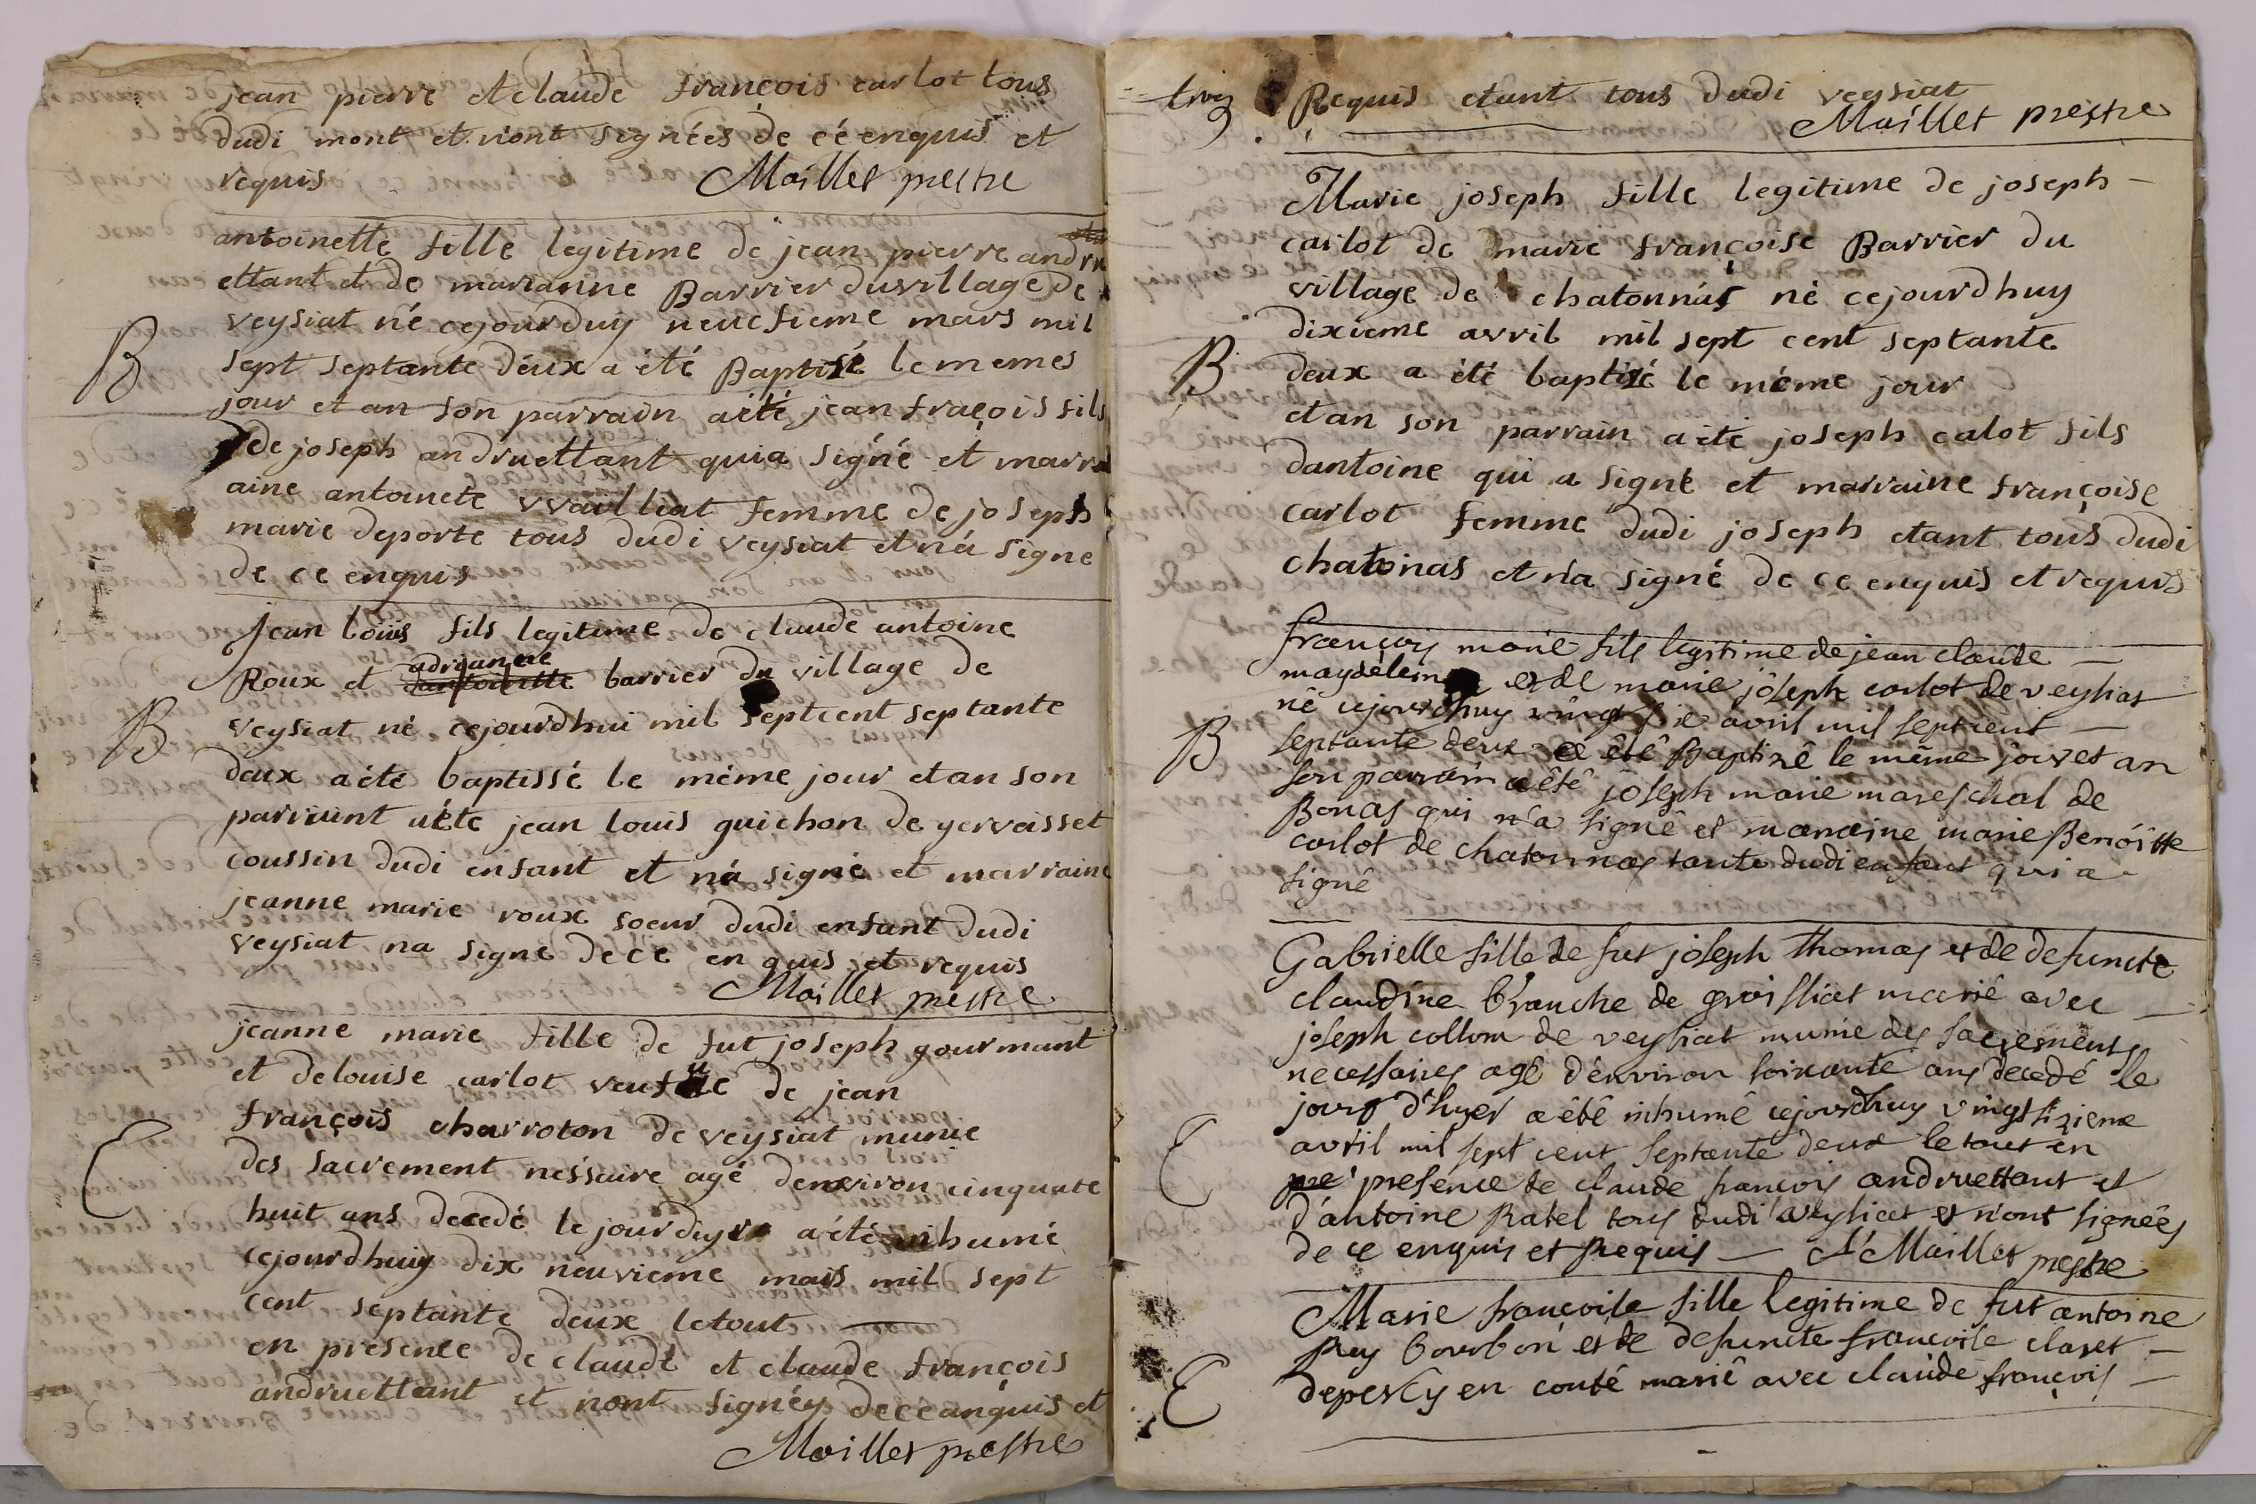 jean pierre et claude françois carlot tous
dudi mont et n'ont signées de cé enquis et
requis Maillet prestre
antoinette fille legitime de jean pierre andru
ettant et de mariarine Barrier du village de
veysiat né cejourduy neucfieme mars mil
B
sept septante déux a été Baptisé le memes
jour et an son parrain aété jean fraçois fils
de joseph andruettant quia signé et marra
aine antoinete vvailliat femme de joseph
marie deporte tous dudi veysiat et n'a signe
de ce enquis
Jean loüis fils legitime de claude antoine
adrianne
Roux et dantoinette barrier du village de
B
veysiat né cejourdhui mil septcent septante
deux aété baptissé le méme jour etan son
parraint aéte jean louis guichon de gervaisset
coussin dudi enfant et n'a signé et marraine
jeanne marie roux soeur dudi enfant dudi
veysiat na signe dece en quis et requis
Maillet prestre
jeanne marie fille de fut joseph gourmant
et delouise carlot veufue de jean
françois charroton de veysiat munie
E
des sacrement nessaire agé denviron cinquate
huit ans decedé le jour dhyer aété inhumé
cejourdhuiy dix neuvieme mars mil sept
cent septante deux letout
en présence de claude et claude françois
andruettant et n'ont signéy dece anquis et
Maillet prestre
troiz
Requis etant tous dudi veysiat
Maillet prestre
Marie joseph fille legitime de joseph
carlot de marie françoise Barrier du
village de chatonnás né cejourdhuy
dixieme avril mil sept cent septante
B
deux a été baptizé le méme jour
etan son parrain aété joseph calot fils
dantoine qui a signé et marraine françoise
carlot femme dudi joseph etant tous dudi
chatonas et n'a signé de ce enquis et requis
françois marie fils legitime de jean claude
maydelein et de marie joseph carlot de veysiat
né cejourdhuy vingt avril mil septcent
B
septante deux a été Baptizé le même jour et an
son parrain a été joseph marie mareschal de
Bonas qui n'a signé et maraine marie Benoitte
carlot de chatonnas tante dudi enfant qui a
signé
Gabrielle fille de fut joseph thomas et de defuncte
claudine branche de groissiat marié avec
joseph collom de veysiat munie des sacrements
necessaires agé d'environ soixante ans decedé le
jours d'hyer a été inhumé cejourdhuy vingt sizieme
E
avril mil sept cent septante deux le tout en
pre presence de claude françois andruettant et
d'antoine Ratel tous dudi veysiat et n'ont signées
de ce enquis et Requis Maillet prestre
Marie françoise fille legitime de fut antoine
Rey bourbon et de defuncte françoise claret
E
depercy en conté marié avec claude françois